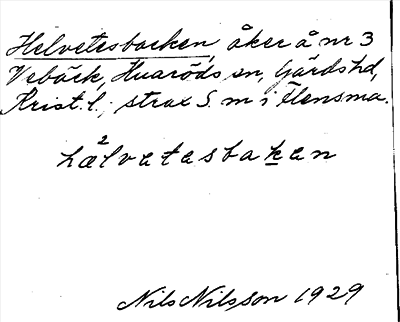 Helvetesbacken, åker å nr 3
Vebäck, Huaröds sn, Gärds hd,
Krist. l.; strax S. m i Hensma.
hæ²lvetesbaken
Nils Nilsson 1929